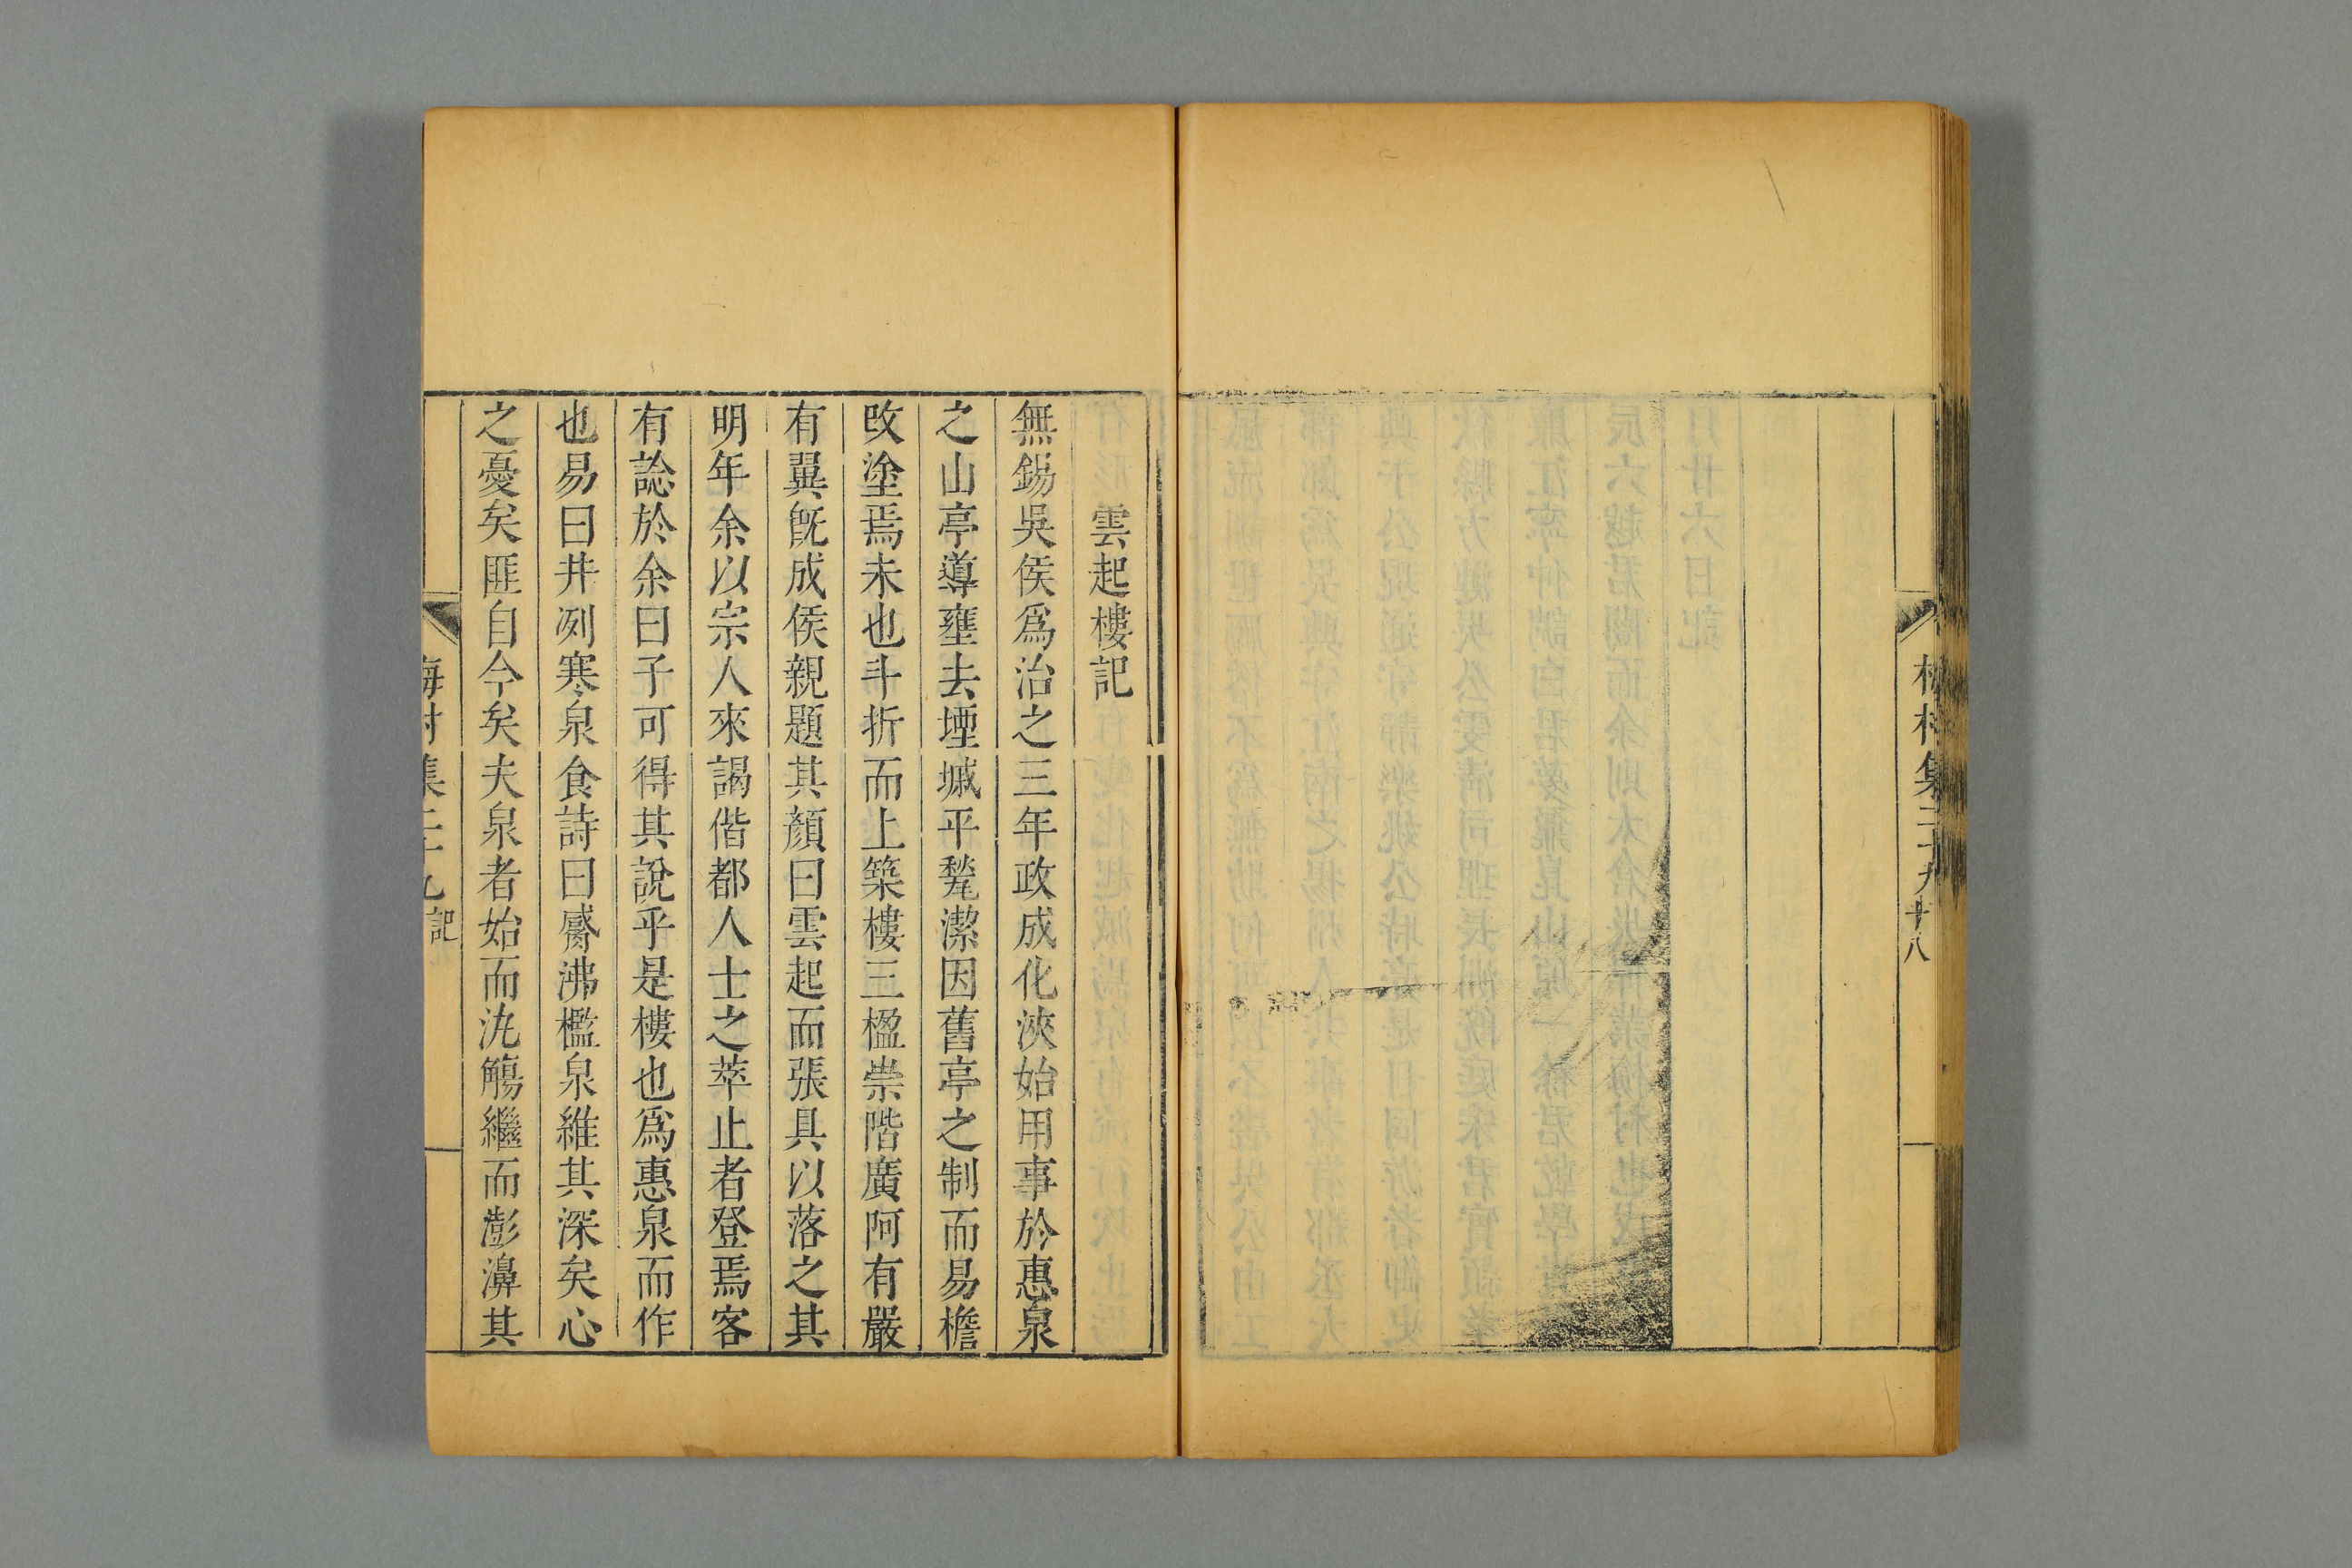 梅村集二十九 十八
雲起樓記
無錫吳侯爲治之三年政成化浹始用事於惠泉
之山亭導壅去堙墄平甃潔因舊亭之制而易檐
改塗焉未也斗折而上築樓三楹崇階廣阿有嚴
有翼旣成侯親題其顏曰雲起而張具以落之其
明年余以宗人來謁偕都人士之萃止者登焉客
有諗於余曰子可得其說乎是樓也爲惠泉而作
也易曰井冽寒泉食詩曰觱沸檻泉維其深矣心
之憂矣匪自今矣夫泉者始而氿觴繼而澎濞其
梅村集二十九 記